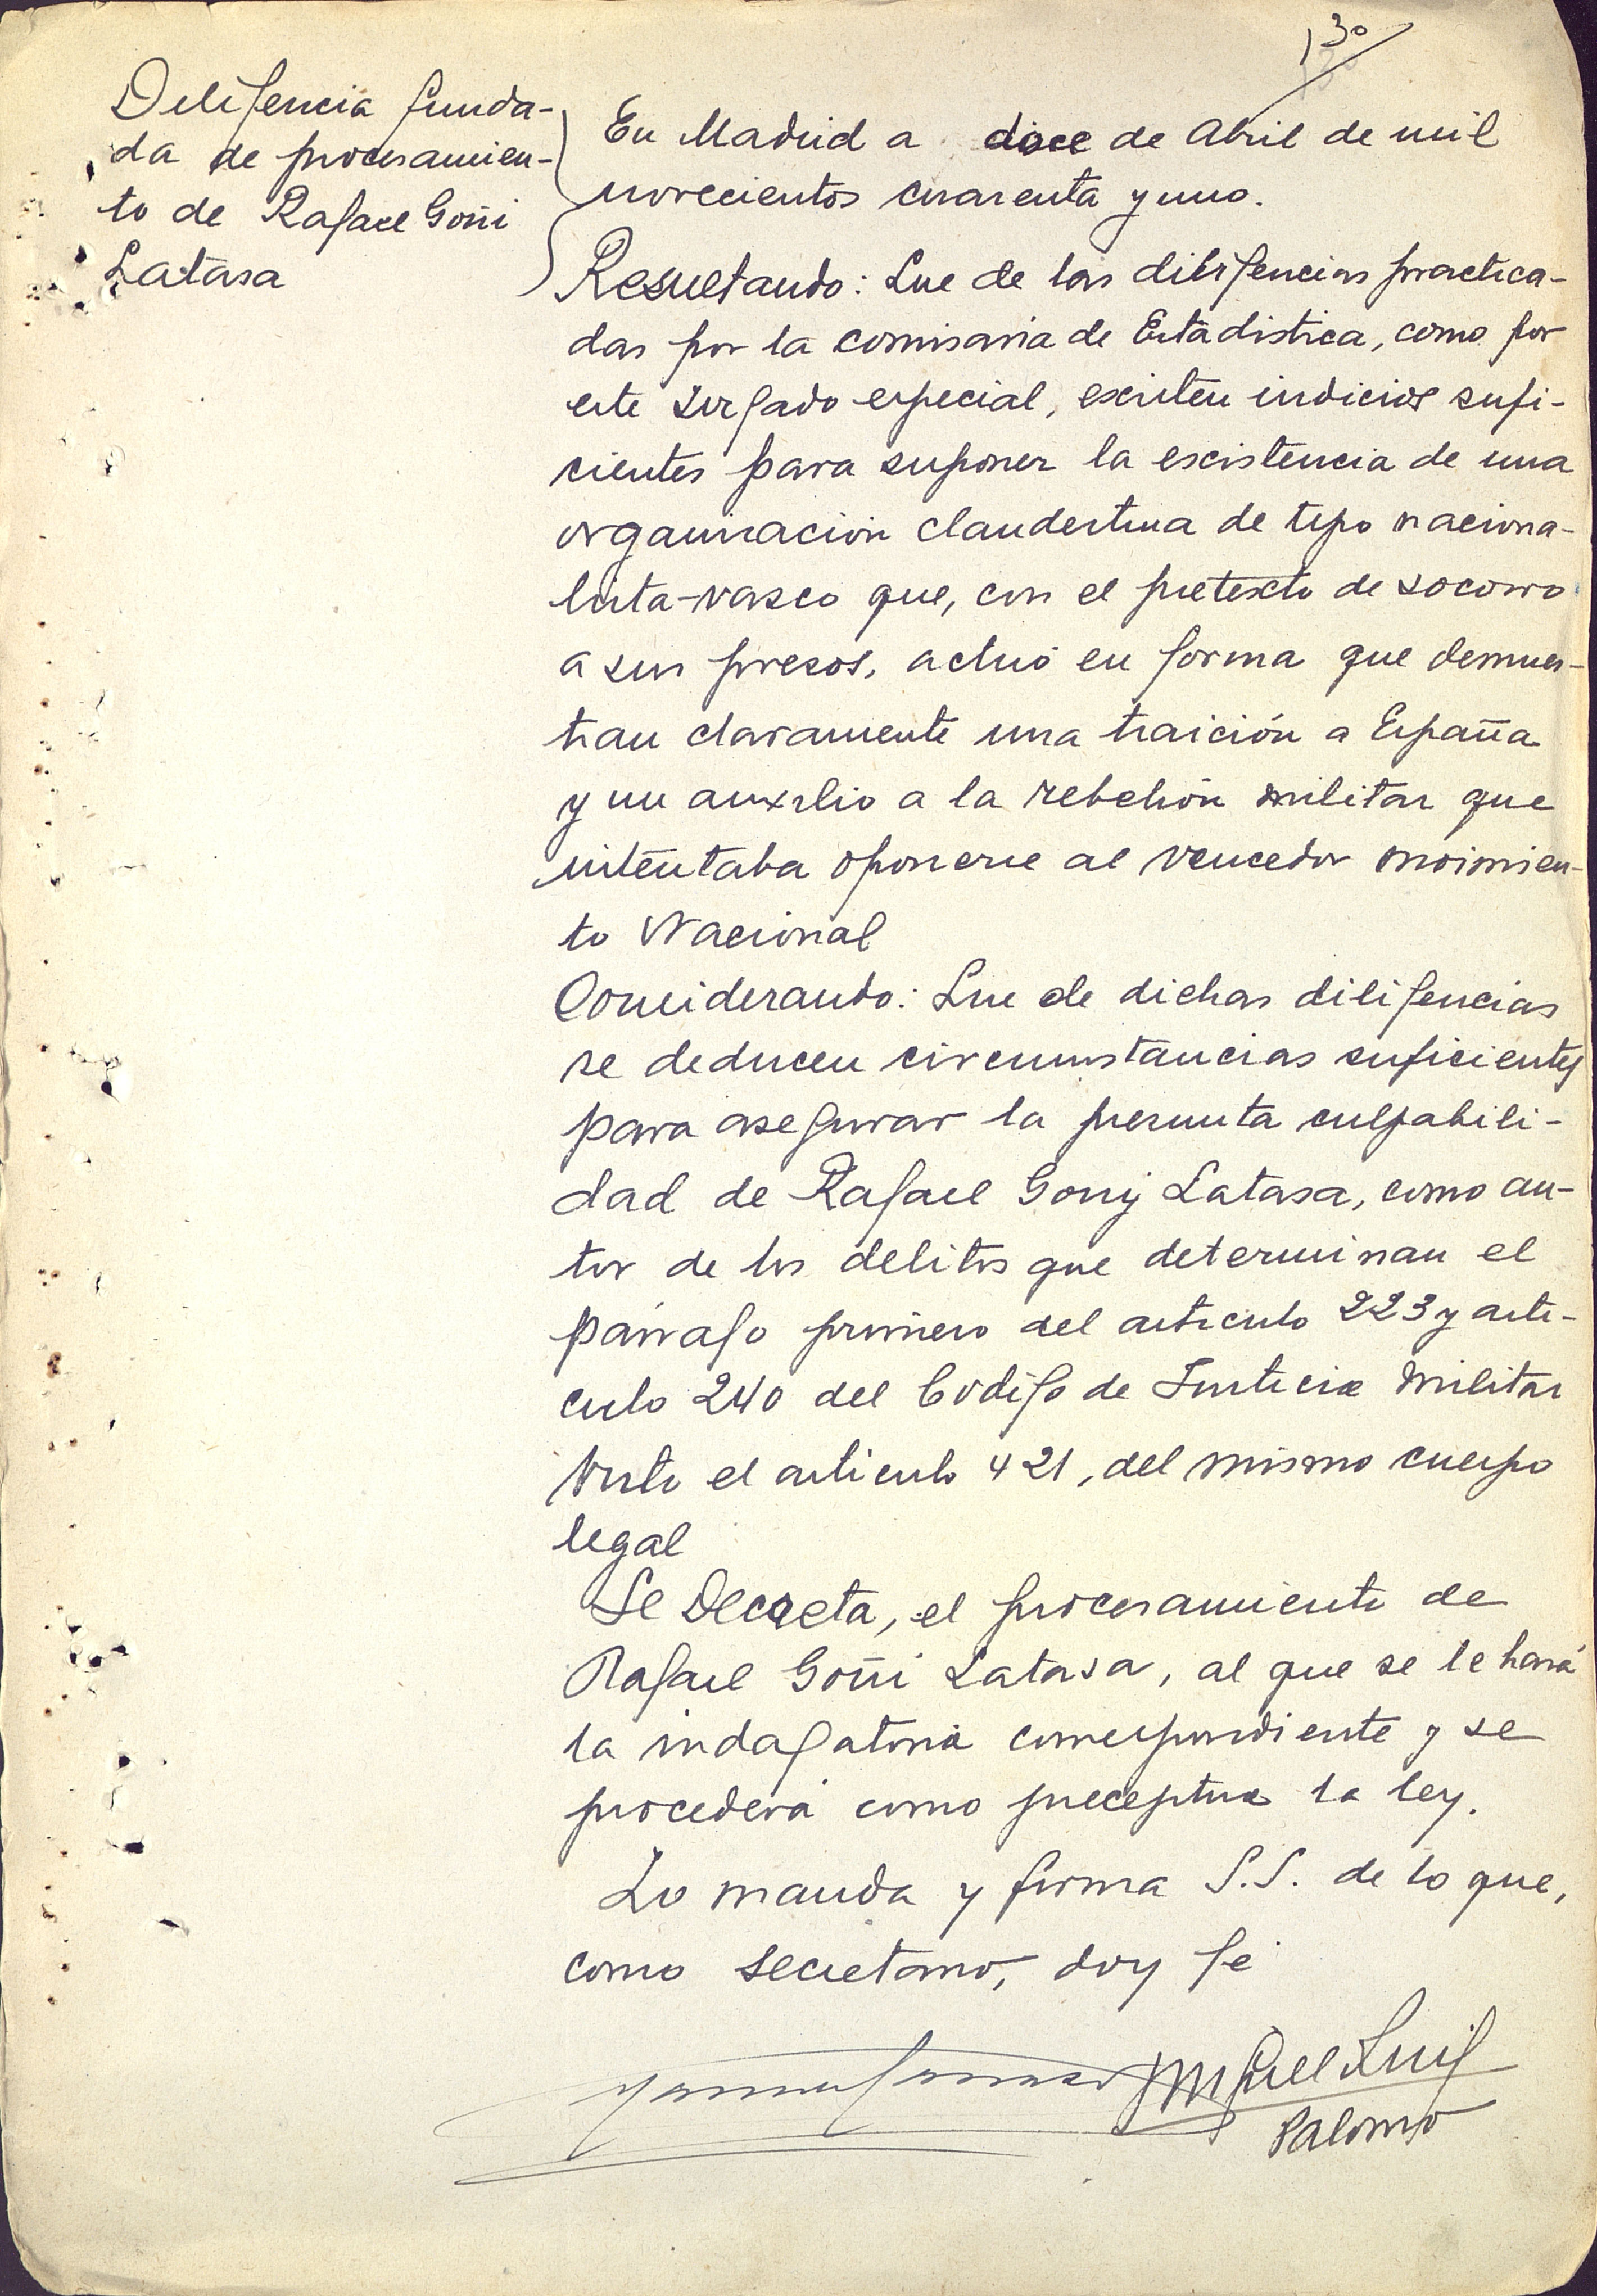 130
Diligencia funda-
da de procesamien-
to de Rafael Goñi
Latasa
En Madrid a doce de Abril de mil
novecientos cuarenta y uno.
Resultando: Que de las diligencias practica-
das por la comisaria de Estadistica, como por
este Juzgado especial, excisten indicios sufi-
cientes para suponer la escistencia de una
organizacion clandestina de tipo naciona-
lista-vasco que, con el pretexto de socorro
a sus presos, actuó en forma que demues-
tran claramente una traición a España
y un auxilio a la rebelión militar que
intentaba oponerse al vencedor moimien-
to Nacional
Considerando: Que de dichas diligencias
se deducen circunstancias suficientes
para asegurar la presunta culpabili-
dad de Rafael Goñi Latasa, como au-
tor de los delitos que determinan el
párrafo primero del articulo 223 y arti-
culo 240 del Codigo de Justicia Militar
Visto el articulo 421, del mismo cuerpo
legal
Se Decreta, el procesamiento de
Rafael Goñi Latasa, al que se le hará
la indagatoria correspondiente y se
procederá como preceptua la ley.
Lo manda y firma S.S. de lo que,
como secretario, doy fé
Miguel Luis
Palomo